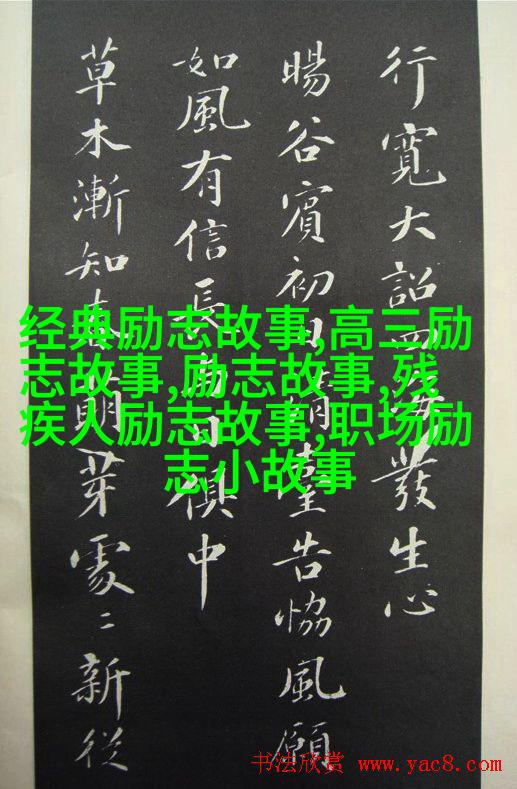 行寬大詔四海發生心
暘谷賓初日臺告協風願
如風有信長日俱中
草木漸知春萌芽處〻新從
经典励志故事,高三励
志故事,励志故事,残
疾人励志故事,职场励
志小故事
书法欣赏 www.yac8.com